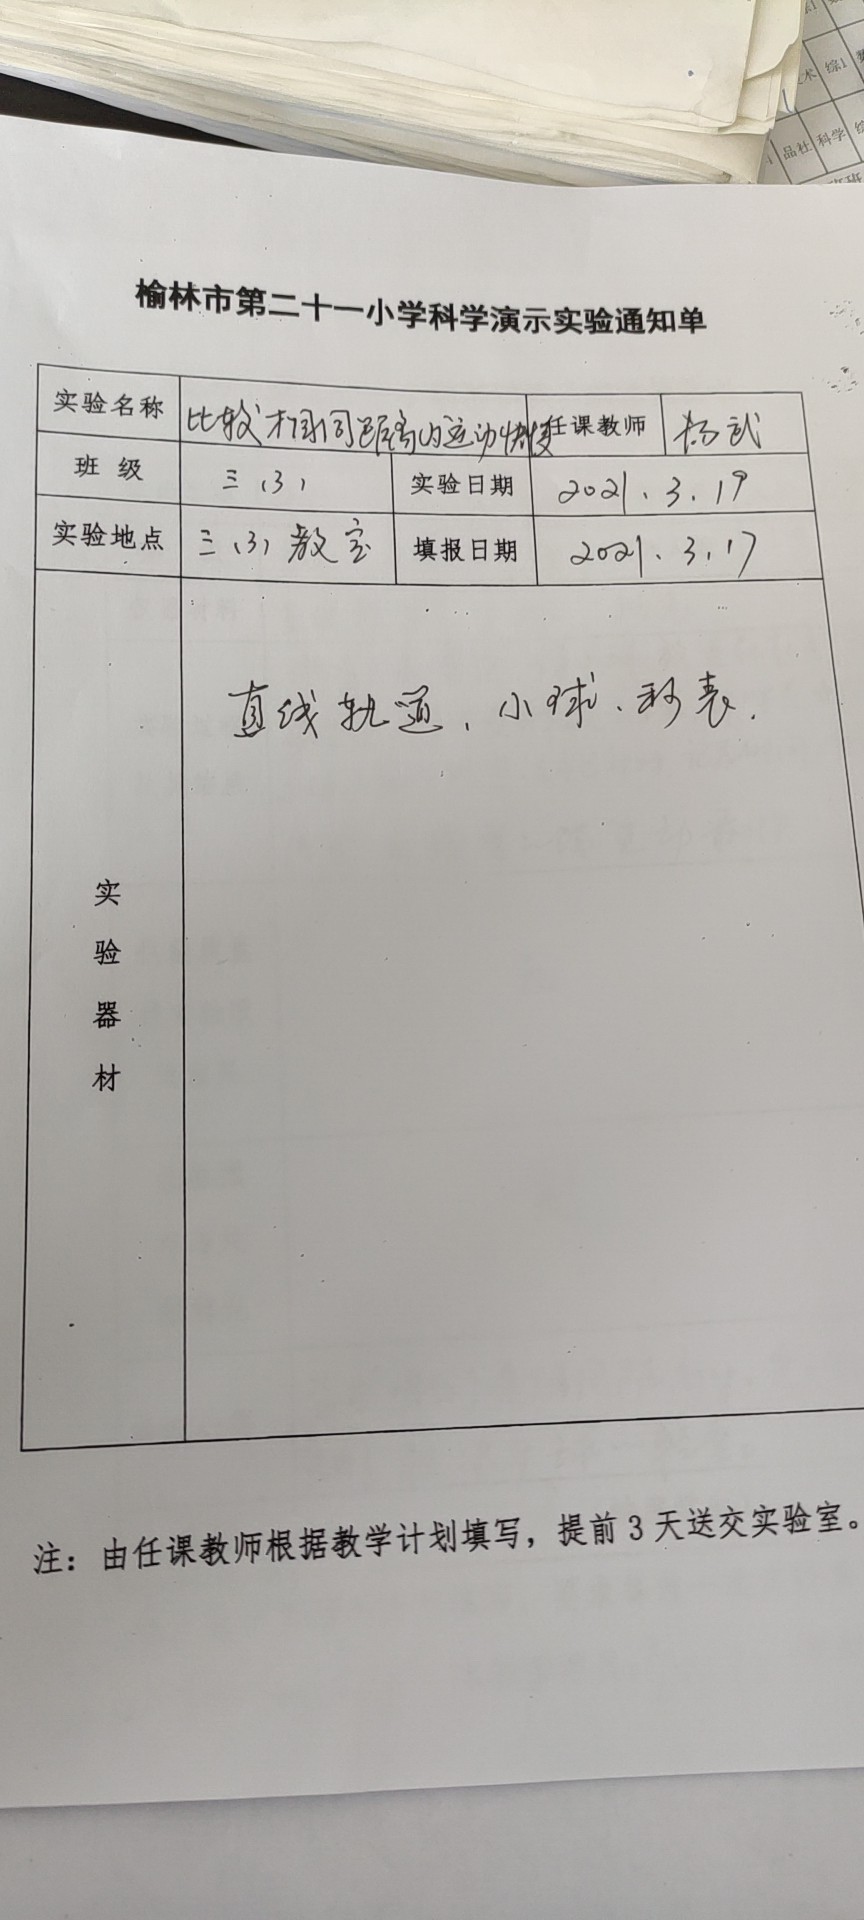 术 综1
品社 科学 综
榆林市第二十一小学科学演示实验通知单
实验名称 比较相同距离内运动快慢 任课教师 杨武
班 级 三（3） 实验日期 2021.3.19
实验地点 三（3）教室 填报日期 2021.3.17
直线轨道、小球、秒表.
实
验
器
材
注：由任课教师根据教学计划填写，提前3天送交实验室。